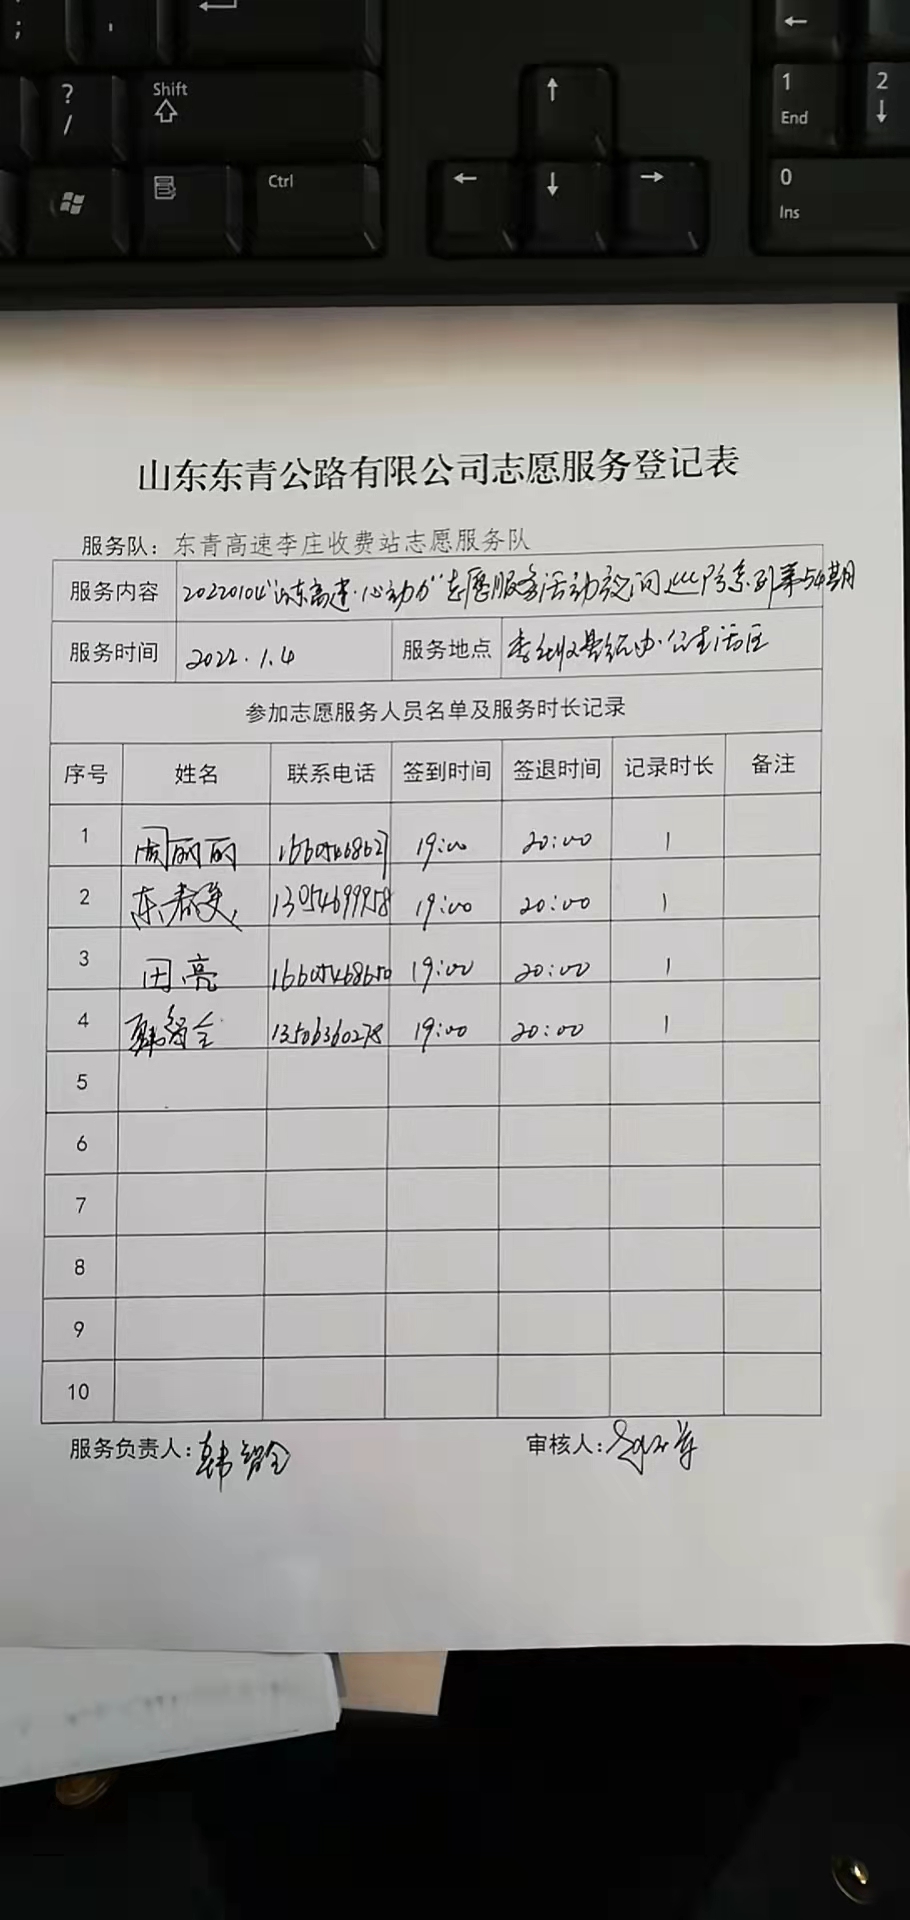 ;
'
←
?
/
Shift
Ctrl
↑
←
↓
→
←
1
End
2
↓
0
Ins
山东东青公路有限公司志愿服务登记表
服务队：东青高速李庄收费站志愿服务队
服务内容 20220104"山东高速·心动力"志愿服务活动夜间巡防系列第54期
服务时间 2022.1.4 服务地点 办公生活区
参加志愿服务人员名单及服务时长记录
序号 姓名 联系电话 签到时间 签退时间 记录时长 备注
1 周丽丽 16605468627 19:00 20:00 1
2 13054699958 19:00 20:00 1
3 田亮 16605468650 19:00 20:00 1
4 韩智全 13506360278 19:00 20:00 1
5
6
7
8
9
10
服务负责人：韩智全 审核人：